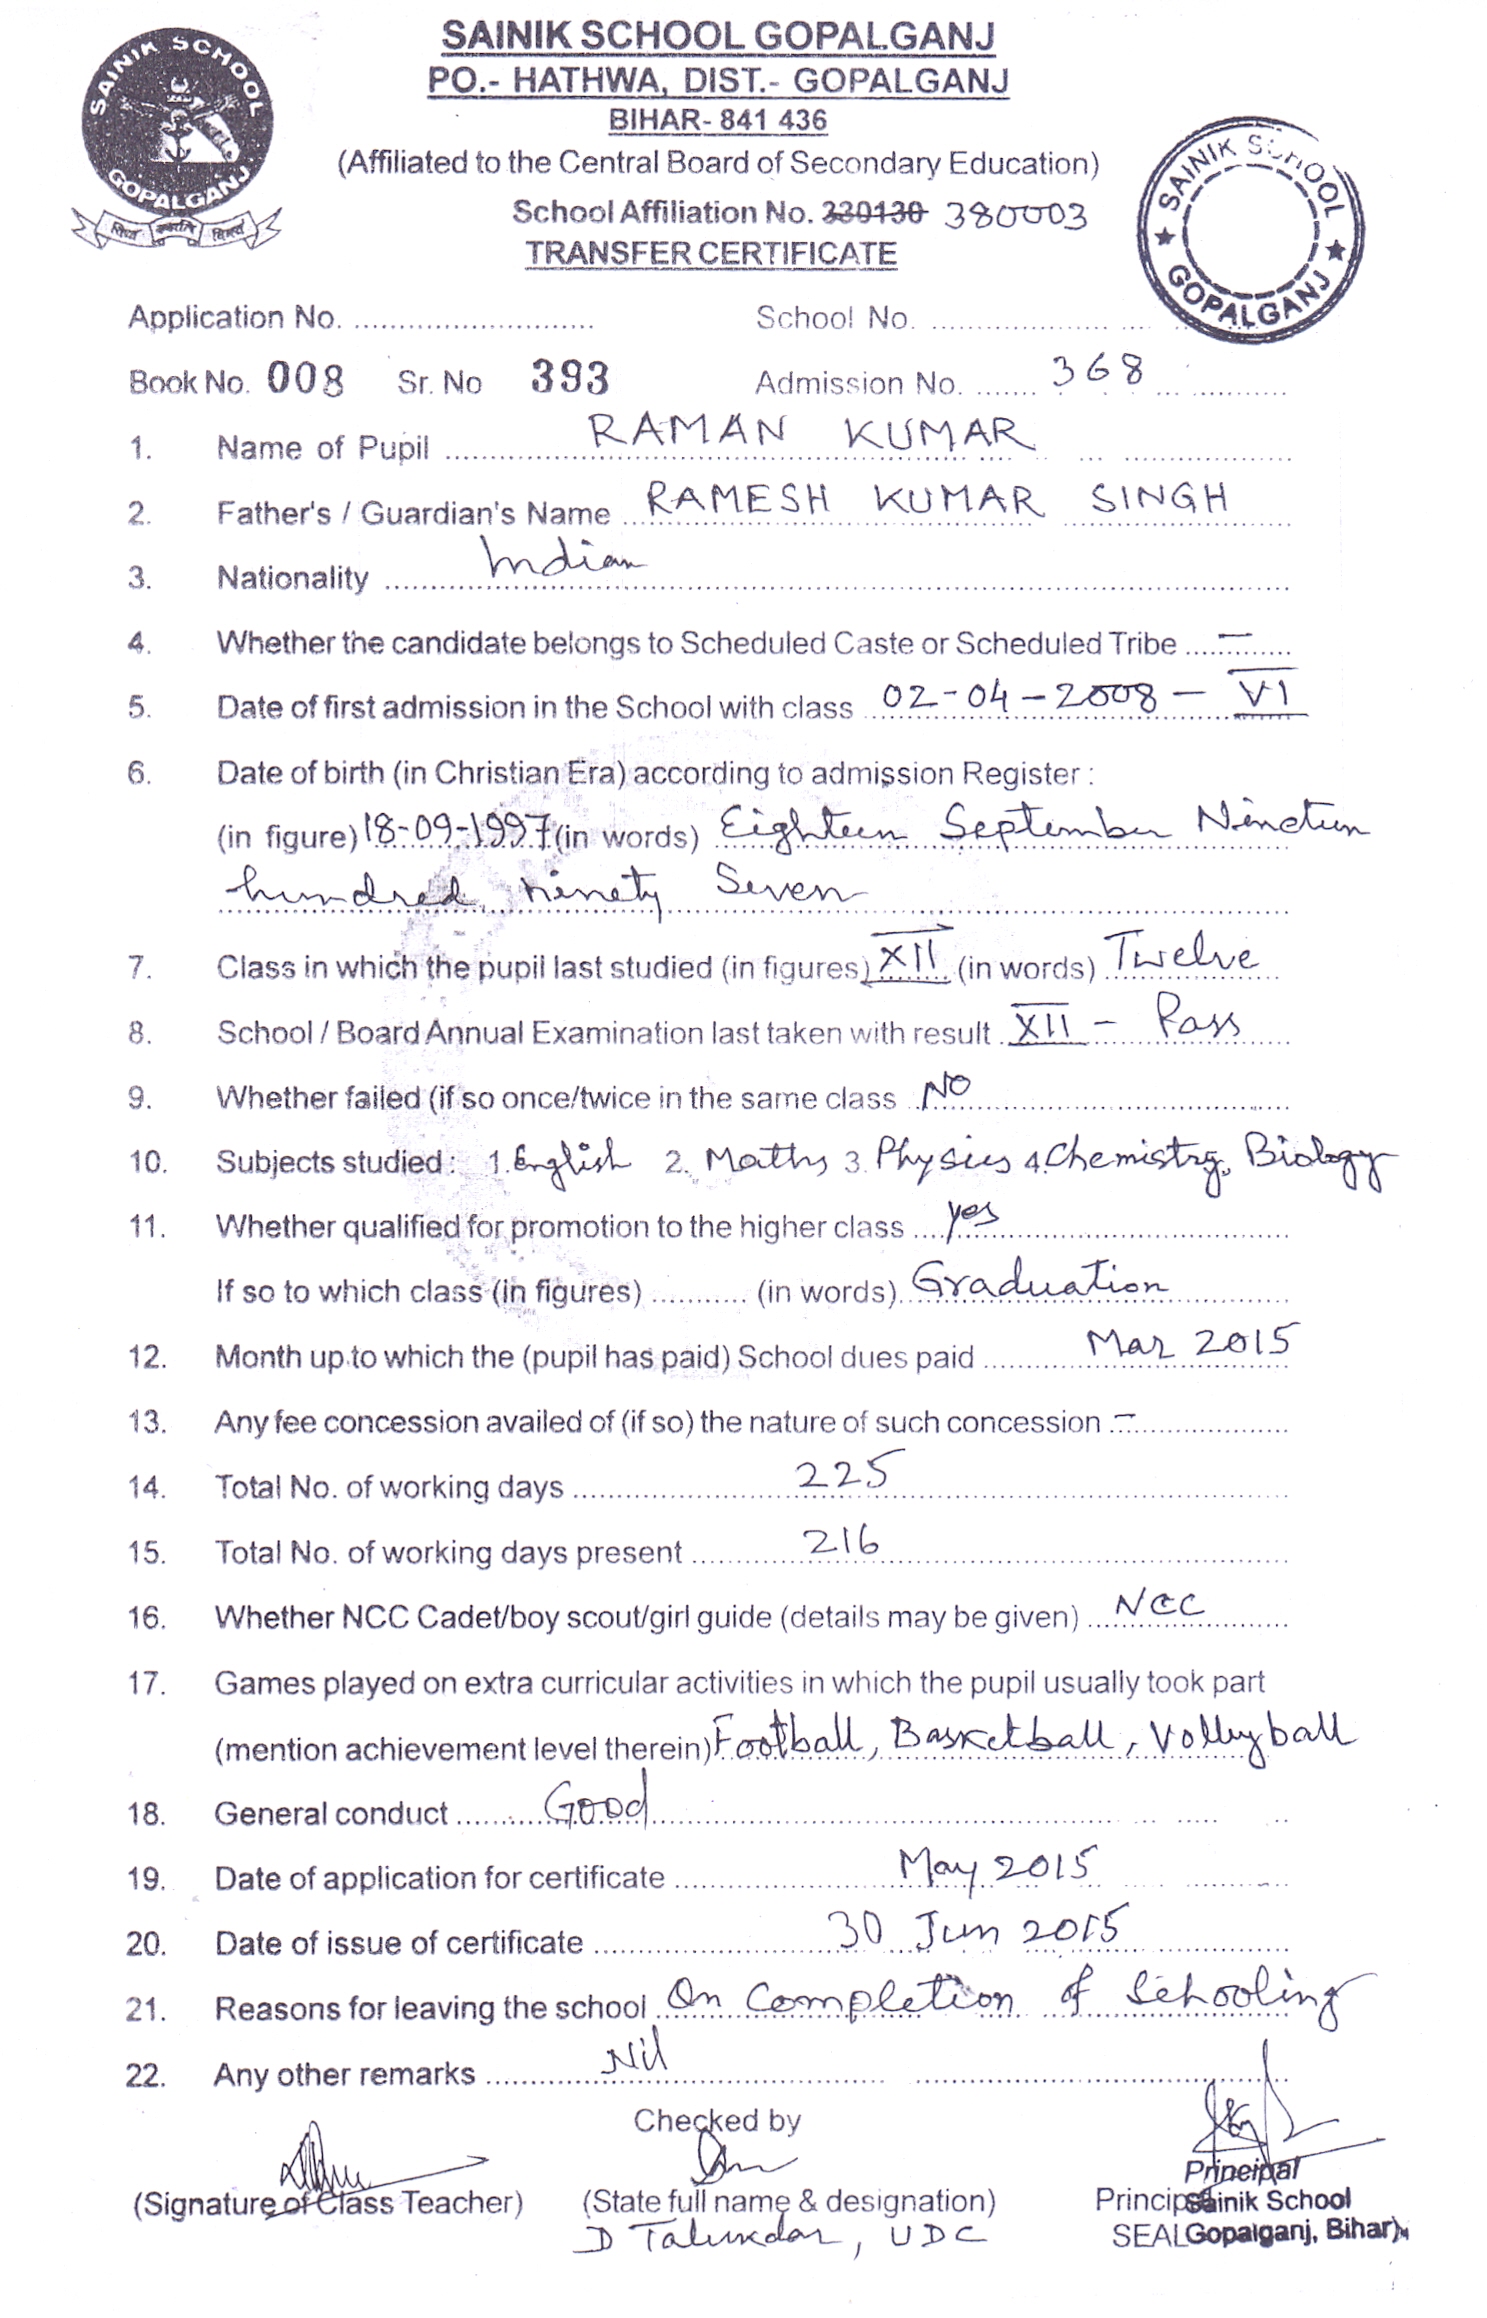 SAINIK SCHOOL GOPALGANJ
PO.- HATHWA, DIST.- GOPALGANJ
BIHAR- 841 436
(Affiliated to the Central Board of Secondary Education)
School Affiliation No. 330130 380003
TRANSFER CERTIFICATE
SAINIK SCHOOL
GOPALGANJ
SAINIK SCHOOL
★ GOPALGANJ ★
Application No. .............................. School No. ..............................
Book No. 008 Sr. No 393 Admission No. ....... 368 ..............
1. Name of Pupil RAMAN KUMAR
2. Father's / Guardian's Name RAMESH KUMAR SINGH
3. Nationality Indian
4. Whether the candidate belongs to Scheduled Caste or Scheduled Tribe —
5. Date of first admission in the School with class 02-04-2008 - VI
6. Date of birth (in Christian Era) according to admission Register :
(in figure) 18-09-1997 (in words) Eighteen September Ninetun
hundred ninety Seven
7. Class in which the pupil last studied (in figures) XII (in words) Twelve
8. School / Board Annual Examination last taken with result XII - Pass
9. Whether failed (if so once/twice in the same class NO
10. Subjects studied : 1. English 2. Maths 3. Physics 4. Chemistry, Biology
11. Whether qualified for promotion to the higher class yes
If so to which class (in figures) ............ (in words) Graduation
12. Month up to which the (pupil has paid) School dues paid Mar 2015
13. Any fee concession availed of (if so) the nature of such concession —
14. Total No. of working days 225
15. Total No. of working days present 216
16. Whether NCC Cadet/boy scout/girl guide (details may be given) NCC
17. Games played on extra curricular activities in which the pupil usually took part
(mention achievement level therein) Football, Basketball, Volleyball
18. General conduct Good
19. Date of application for certificate May 2015
20. Date of issue of certificate 30 Jun 2015
21. Reasons for leaving the school On Completion of Schooling
22. Any other remarks Nil
Checked by
(Signature of Class Teacher) (State full name & designation) Principal
D Talukdar, UDC SEAL
Principal
Sainik School
Gopalganj, Bihar)